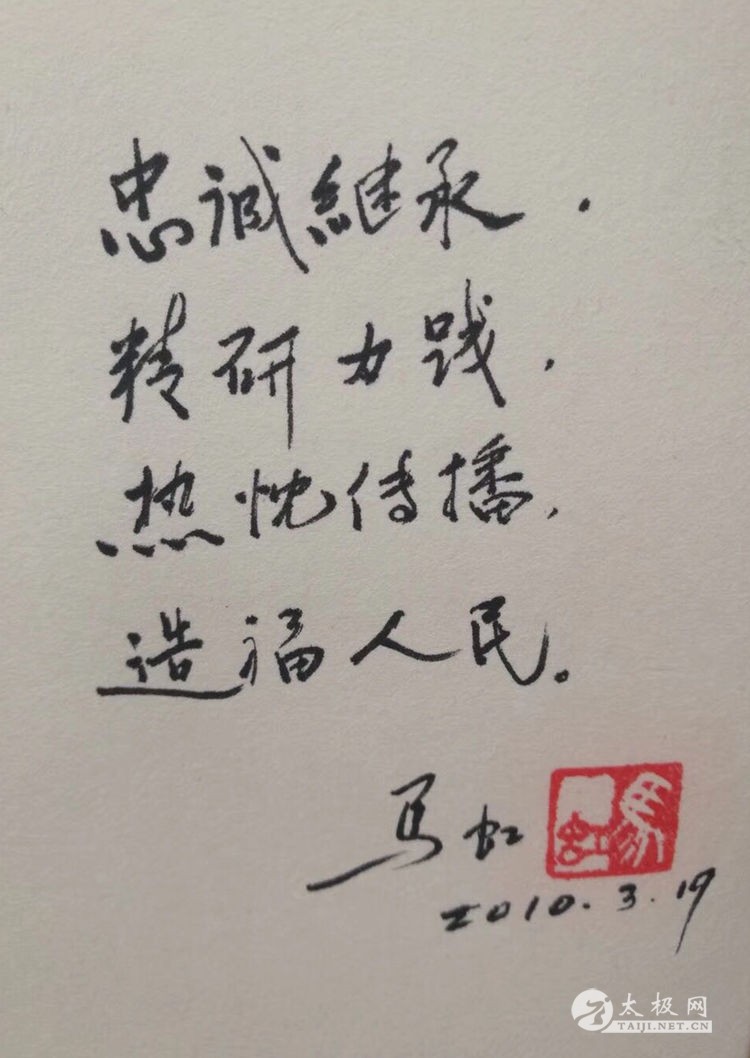 忠诚継承.
精研力践.
热忱传播,
造福人民。
马虹
马虹
2010.3.19
太极网
TAIJI.NET.CN